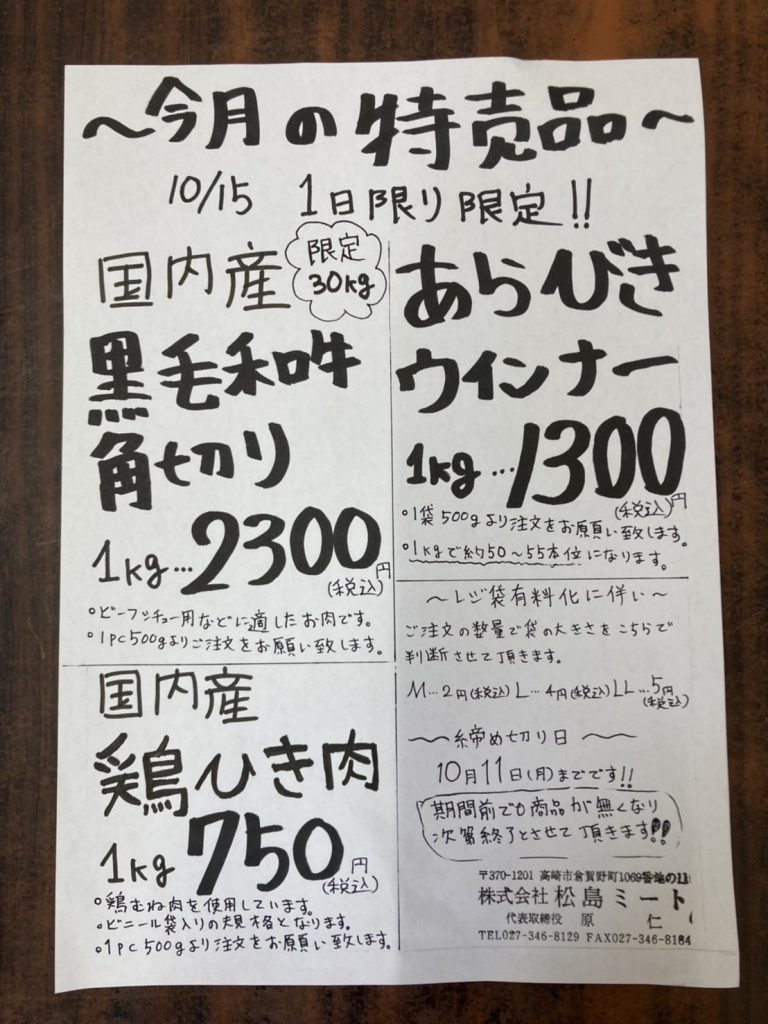 〜今月の特売品〜
10/15 1日限り限定!!
国内産
限定
30kg
黒毛和牛
角切り
1kg…2300円
(税込)
°ビーフシチュー用などに適したお肉です。
°1pc500gよりご注文をお願い致します。
国内産
鶏ひき肉
1kg 750円
(税込)
°鶏むね肉を使用しています。
°ビニール袋入りの規格となります。
°1pc500gより注文をお願い致します。
あらびき
ウインナー
1kg…1300円
(税込)
°1袋500gより注文をお願い致します。
°1kgで約50〜55本位になります。
〜レジ袋有料化に伴い〜
ご注文の数量で袋の大きさをこちらで
判断させて頂きます。
M…2円(税込)L…4円(税込)LL…5円
(税込)
〜締め切り日〜
10月11日(月)までです!!
期間前でも商品が無くなり
次第終了とさせて頂きます!!
〒370-1201 高崎市倉賀野町1069番地の11
株式会社 松島ミート
代表取締役 原 仁
TEL027-346-8129 FAX027-346-8184